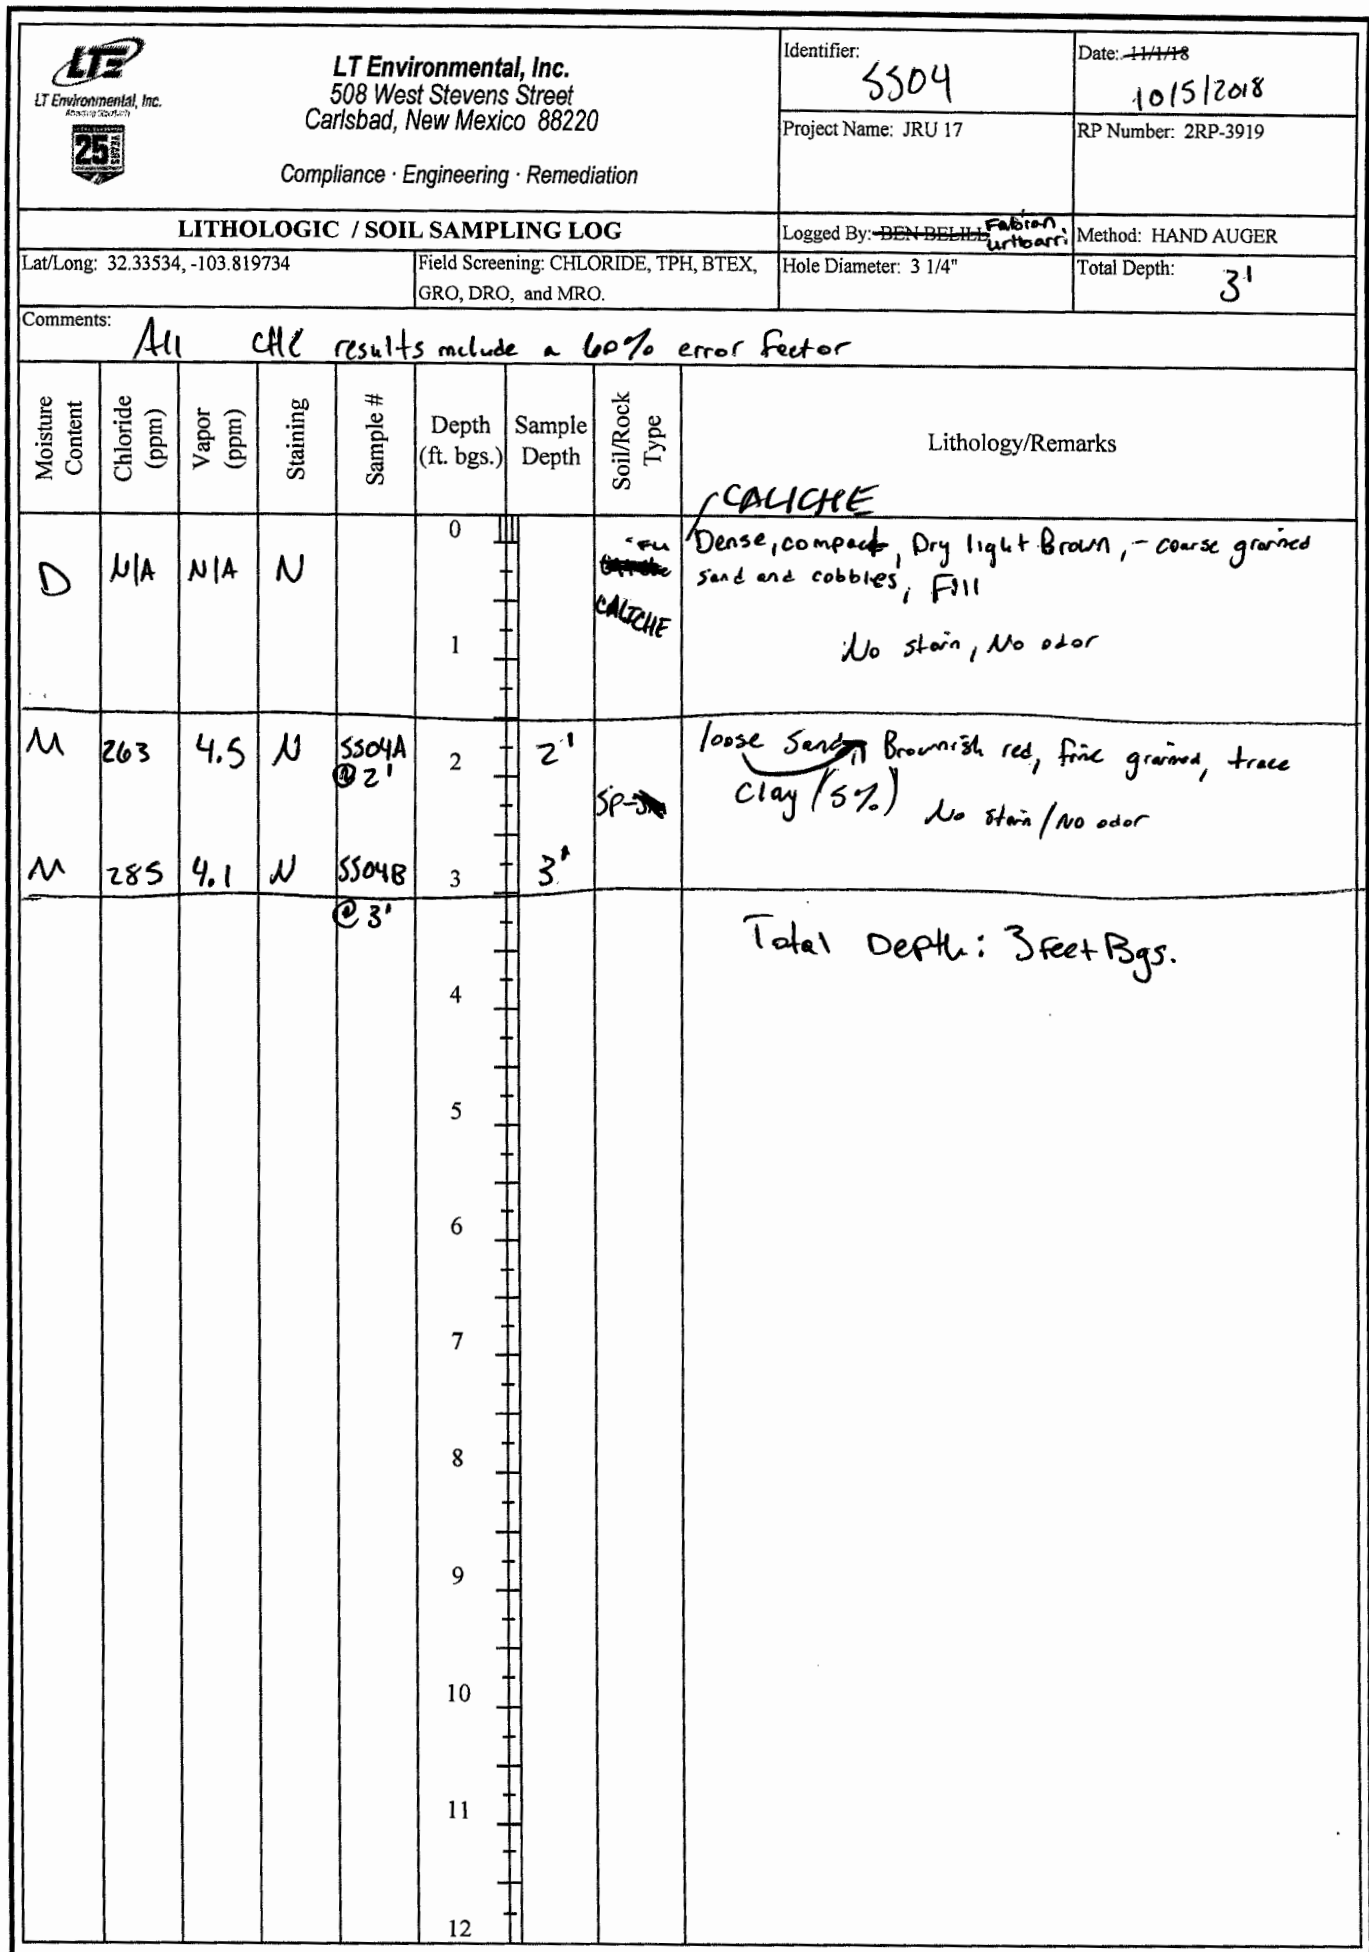 LTE
LT Environmental, Inc.
25 YEARS
LT Environmental, Inc.
508 West Stevens Street
Carlsbad, New Mexico 88220
Compliance · Engineering · Remediation
Identifier:
SS04
Date: 11/1/18
10/5/2018
Project Name: JRU 17
RP Number: 2RP-3919
LITHOLOGIC / SOIL SAMPLING LOG
Logged By: BEN BELILL Fabian
Method: HAND AUGER
Lat/Long: 32.33534, -103.819734
Field Screening: CHLORIDE, TPH, BTEX,
GRO, DRO, and MRO.
Hole Diameter: 3 1/4"
Total Depth:
3'
Comments:
All CHL results include a 60% error factor
Moisture Content
Chloride (ppm)
Vapor (ppm)
Staining
Sample #
Depth (ft. bgs.)
Sample Depth
Soil/Rock Type
Lithology/Remarks
CALICHE
0
D N/A N/A N
CALICHE
Dense, compact, Dry light Brown, - coarse grained
sand and cobbles, Fill
No stain, No odor
1
M 263 4.5 N SS04A @ 2' 2 2'
SP-
loose Sand, Brownish red, fine grained, trace
Clay (5%) No stain/No odor
M 285 4.1 N SS04B @ 3' 3 3'
Total Depth: 3 feet Bgs.
4
5
6
7
8
9
10
11
12